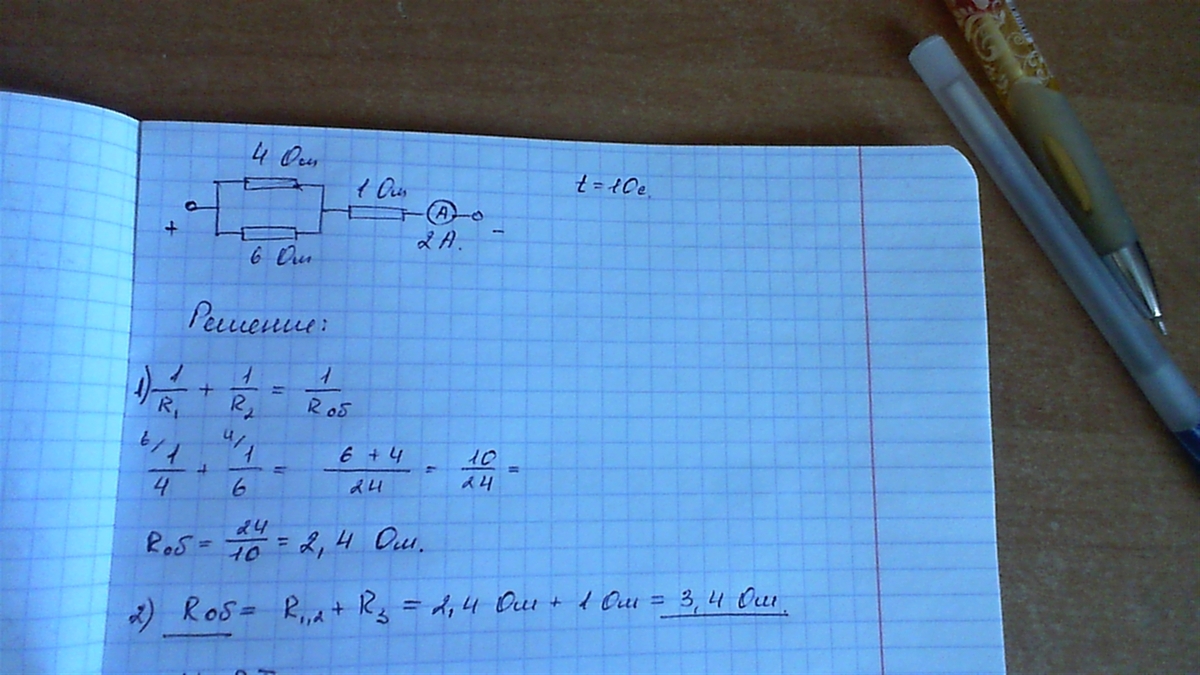 4 Ом
1 Ом
t = 10с.
+
A
-
2 А.
6 Ом
Решение:
1) 1/R₁ + 1/R₂ = 1/Rоб
6/ 1/4 + 4/ 1/6 = (6 + 4)/24 = 10/24 =
Rоб = 24/10 = 2,4 Ом.
2) Rоб = R₁,₂ + R₃ = 2,4 Ом + 1 Ом = 3,4 Ом.